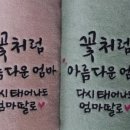 꽃처럼
아름다운 엄마
다시 태어나도
엄마딸로♡
꽃처럼
아름다운 엄마
다시 태어나도
엄마딸로♡